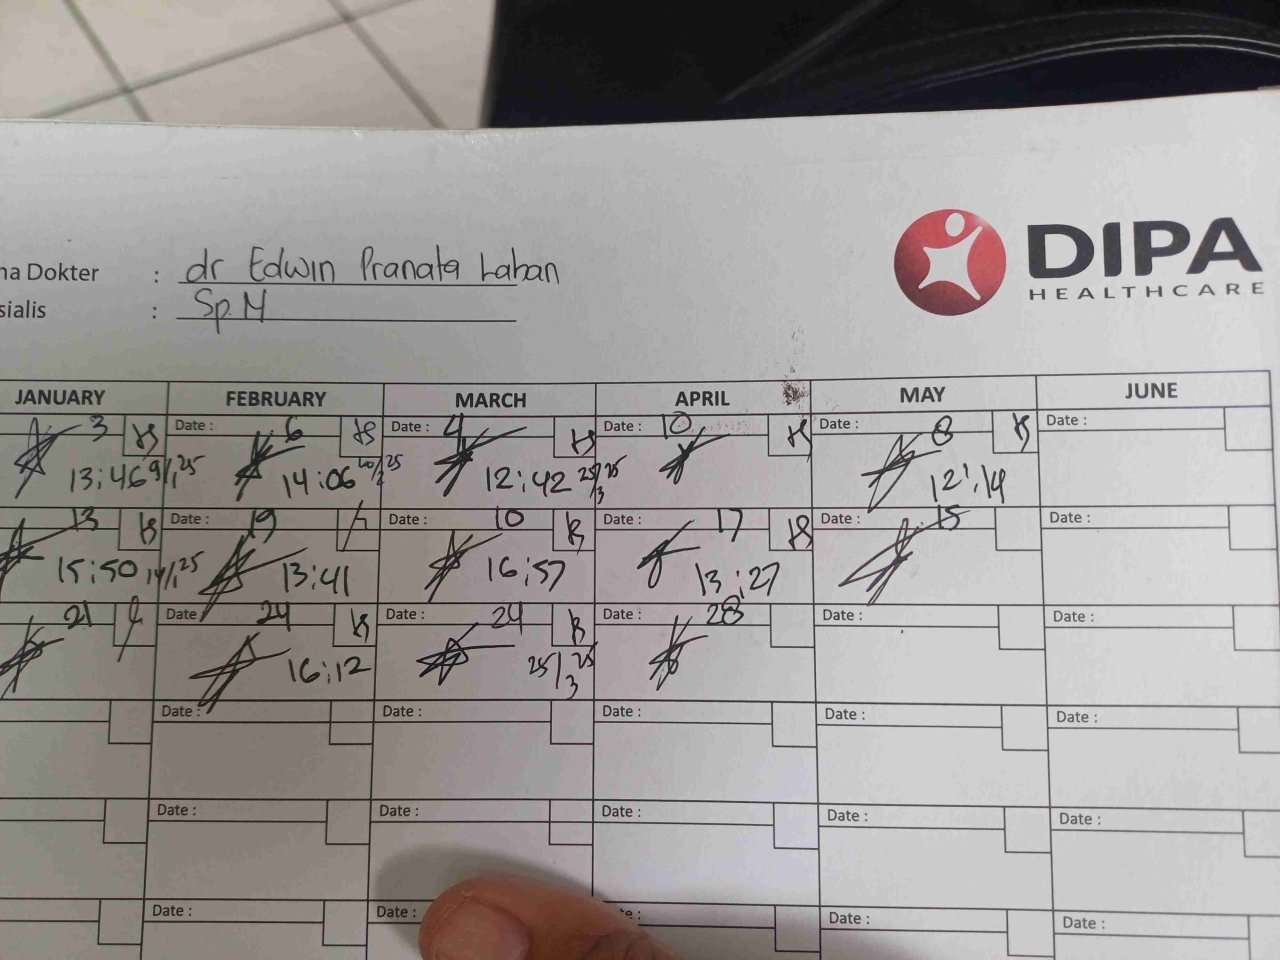 na Dokter : dr Edwin Pranata Lahan
sialis : Sp.M
DIPA
HEALTHCARE
JANUARY FEBRUARY MARCH APRIL MAY JUNE
3 Date : 6 Date : 4 Date : 10 Date : 8 Date :
13:46 9/1 25 14:06 20/2 25 12:42 25/3 25 12:14
13 Date : 19 Date : 10 Date : 17 Date : 15 Date :
15:50 14/1 25 13:41 16:57 13:27
21 Date : 24 Date : 24 Date : 28 Date : Date :
16:12 25/3 25
Date : Date : Date : Date : Date :
Date : Date : Date : Date : Date :
Date : Date : Date : Date :